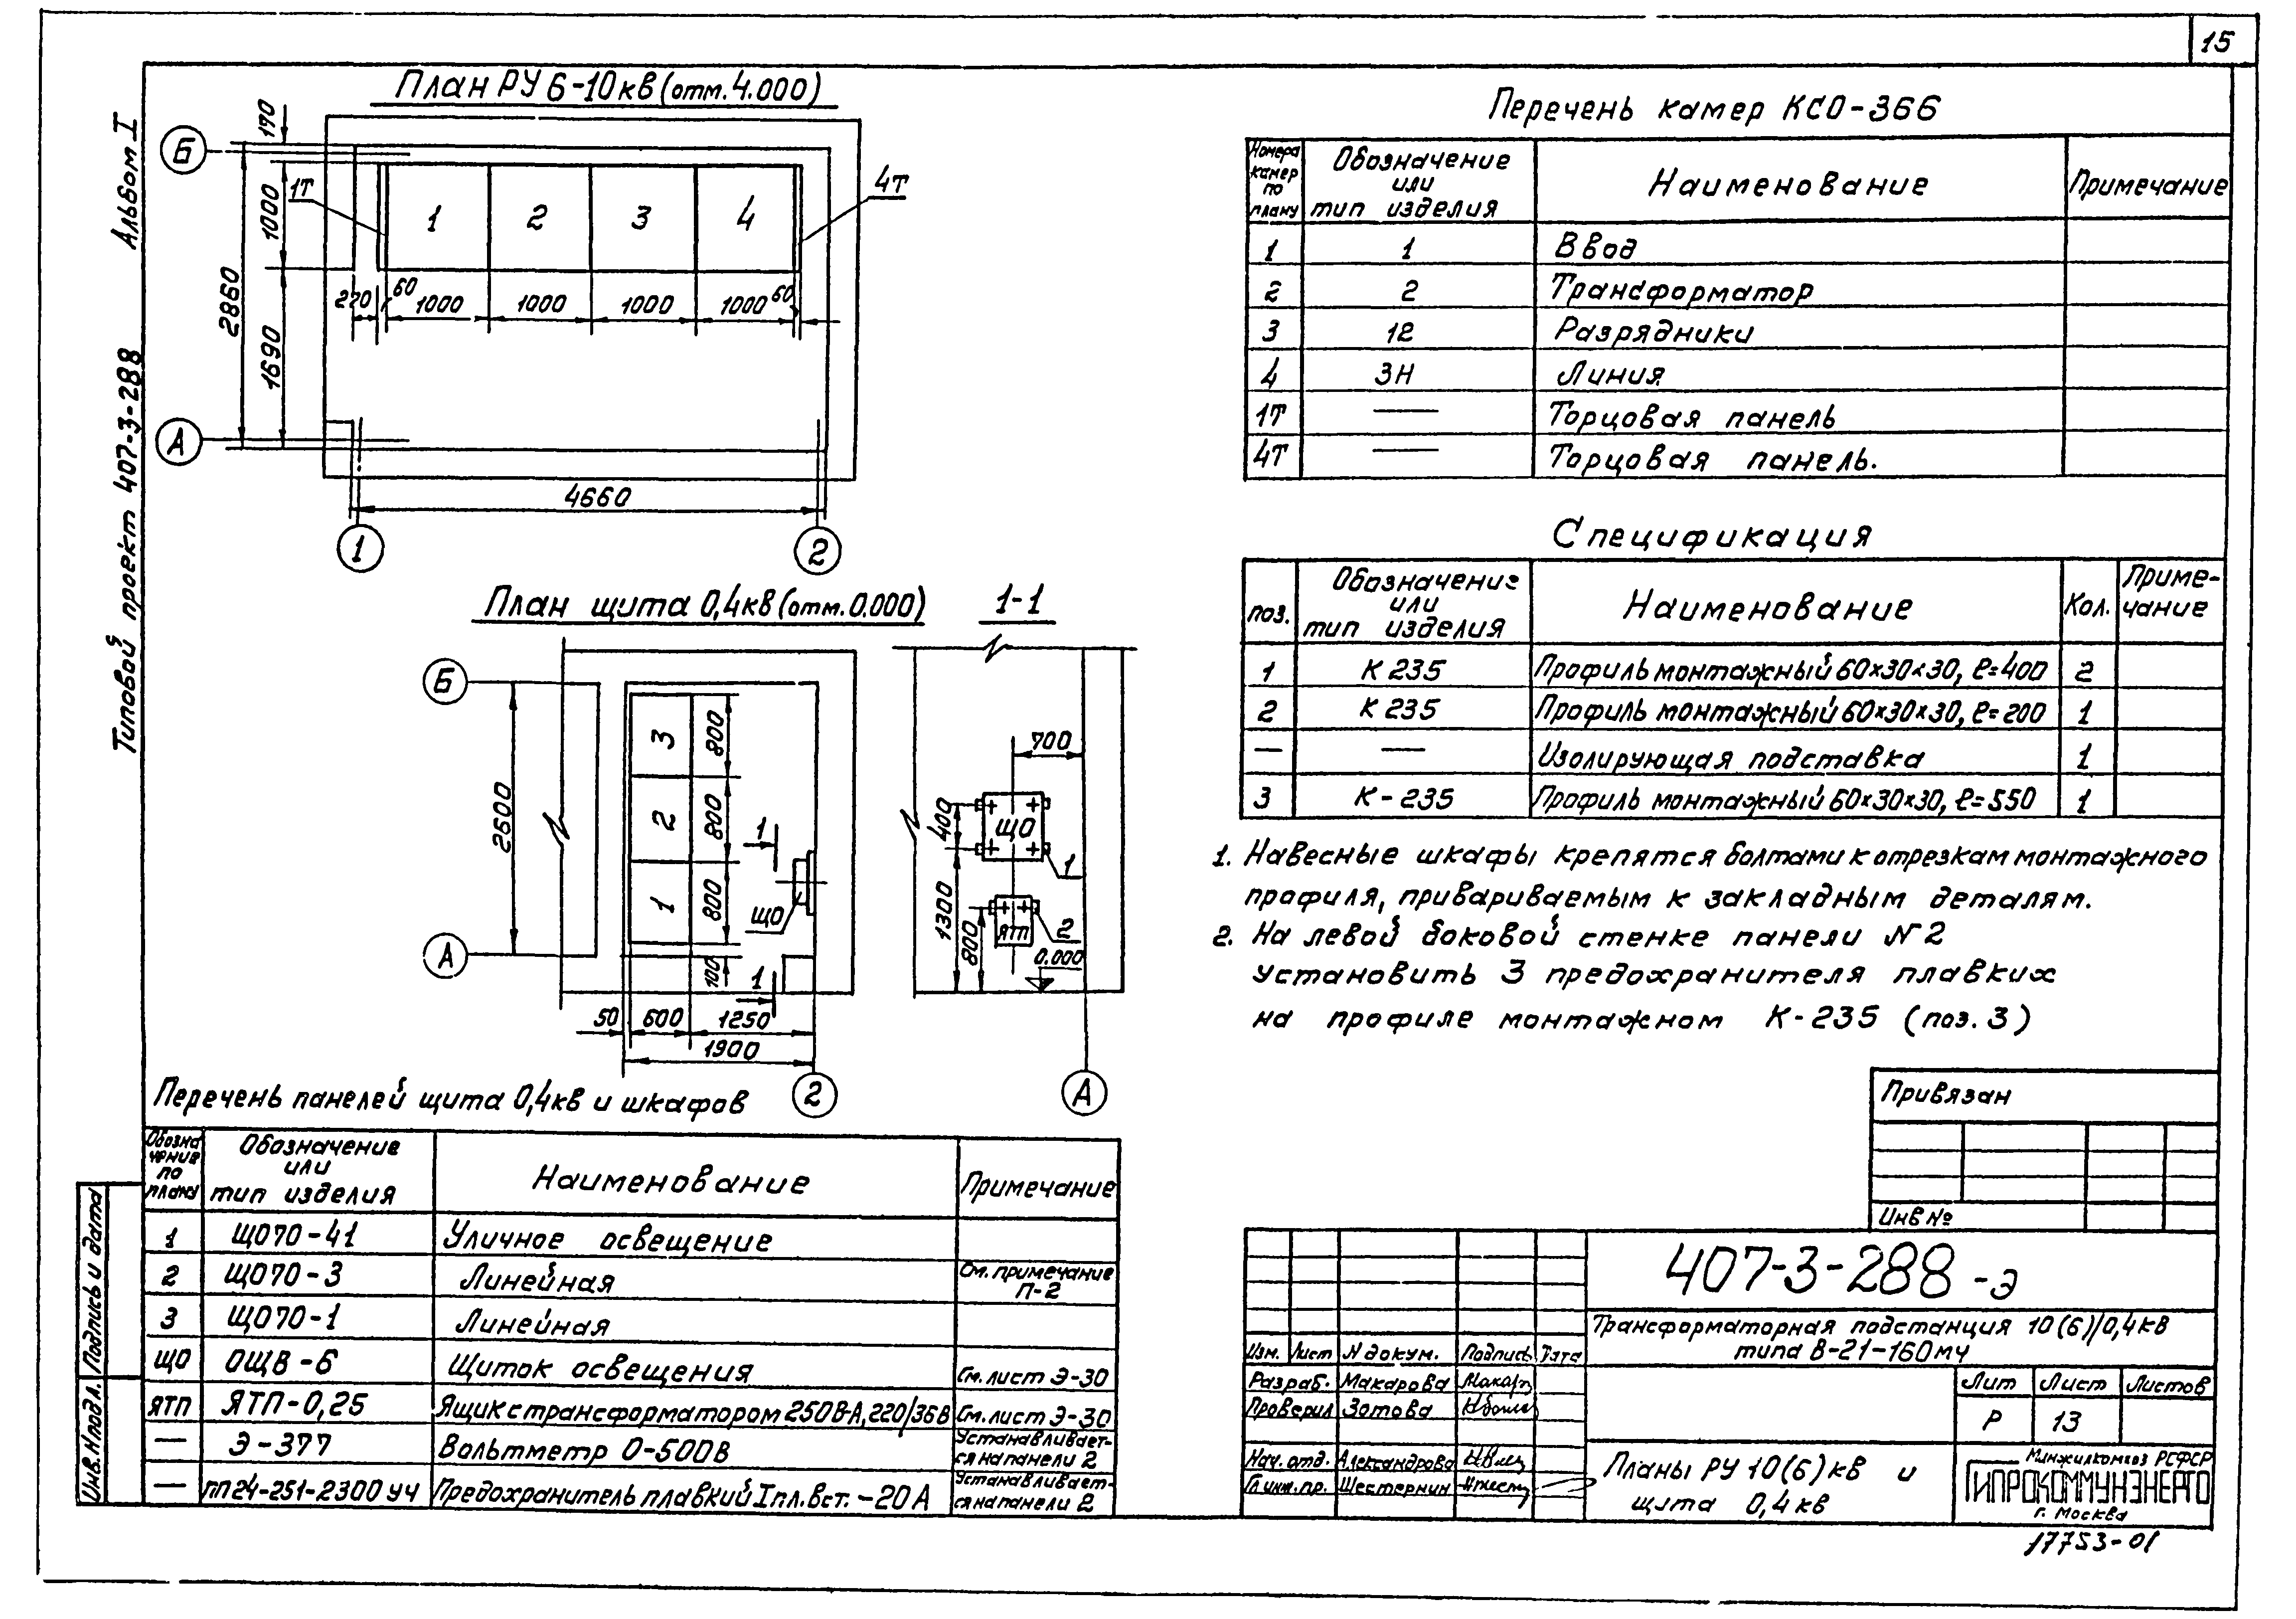 15
Альбом I
Типовой проект 407-3-288
План РУ 6-10кв (отм. 4.000)
Б
А
170
1000
2860
1690
1Т
1
2
3
4
4Т
270
60
1000
1000
1000
1000
60
4660
1
2
План щита 0,4кв (отм. 0.000)
1-1
Б
А
2600
3
2
1
800
800
800
100
1
1
ЩО
50
600
1250
1900
2
700
400
1300
800
ЩО
ЯТП
1
2
0.000
А
Перечень панелей щита 0,4кв и шкафов
Обозначения по плану
Обозначение или тип изделия
Наименование
Примечание
1 ЩО70-41 Уличное освещение
2 ЩО70-3 Линейная См. примечание П-2
3 ЩО70-1 Линейная
ЩО ОЩВ-6 Щиток освещения См. лист Э-30
ЯТП ЯТП-0,25 Ящик с трансформатором 250В-А, 220/36В См. лист Э-30
— Э-377 Вольтметр 0-500В Устанавливается на панели 2
— ПП24-251-2300 УЧ Предохранитель плавкий Iпл.вст.-20А Устанавливается на панели 2
Перечень камер КСО-366
Номера камер по плану
Обозначение или тип изделия
Наименование
Примечание
1 1 Ввод
2 2 Трансформатор
3 12 Разрядники
4 3Н Линия
1Т — Торцовая панель
4Т — Торцовая панель.
Спецификация
поз.
Обозначение или тип изделия
Наименование
Кол.
Примечание
1 К 235 Профиль монтажный 60×30×30, ℓ=400 2
2 К 235 Профиль монтажный 60×30×30, ℓ=200 1
— — Изолирующая подставка 1
3 К-235 Профиль монтажный 60×30×30, ℓ=550 1
1. Навесные шкафы крепятся болтами к отрезкам монтажного
профиля, привариваемым к закладным деталям.
2. На левой боковой стенке панели №2
установить 3 предохранителя плавких
на профиле монтажном К-235 (поз. 3)
Привязан
Инв №
407-3-288-Э
Трансформаторная подстанция 10(6)/0,4кв
типа В-21-160мч
Изм. Лист N докум. Подпись Дата
Разраб. Макарова
Проверил Зотова
Нач. отд. Александрова
Гл.инж.пр. Шестернин
Лит Лист Листов
Р 13
Планы РУ 10(6)кв и
щита 0,4кв
Минжилкомхоз РСФСР
ГИПРОКОММУНЭНЕРГО
г. Москва
17753-01
Подпись и дата
Инв. N подл.